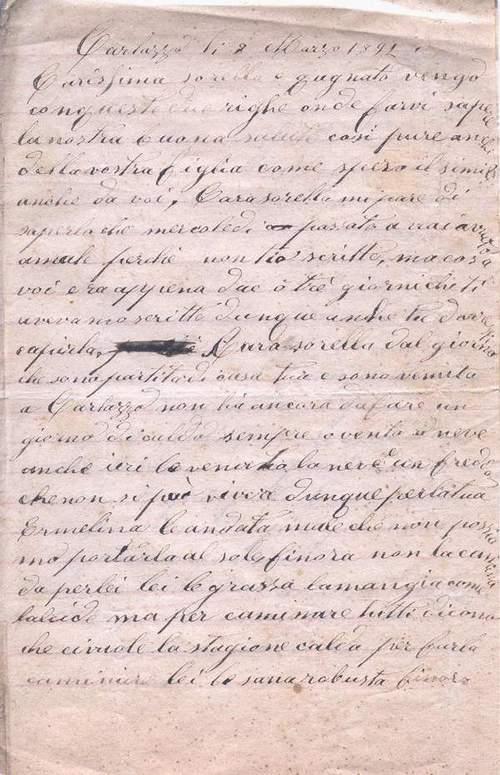 Carlazzo li 8 Marzo 1891
Carissima sorella e qugnato vengo
con queste due righe onde farvi sapere
la nostra buona salute cosi pure anche
della vostra figlia come spero il simile
anche da voi, Cara sorella mi pare di
saperla che mercoledi passato a vai avuto
a male perché non tio scritto, ma cosa
voi era appena due ó tré giorni che ti
avevamo scritto dunque anche tu dovevi
capirla, Cara sorella dal giorno
che sono partita di casa tua e sono venuta
a Carlazzo non há ancora dafare un
giorno di caldo sempre o vento o neve
anche ieri le venu la neve un freddo
che non si può vivere dunque per la tua
Ermelina le andata male che non possia
mo portarla al sole finora non la camina
da per lei lei le grassa la mangia come
ma per caminare tutti dicono
che ci vuole la stagione calda per farla
caminare lei le sana robusta finora